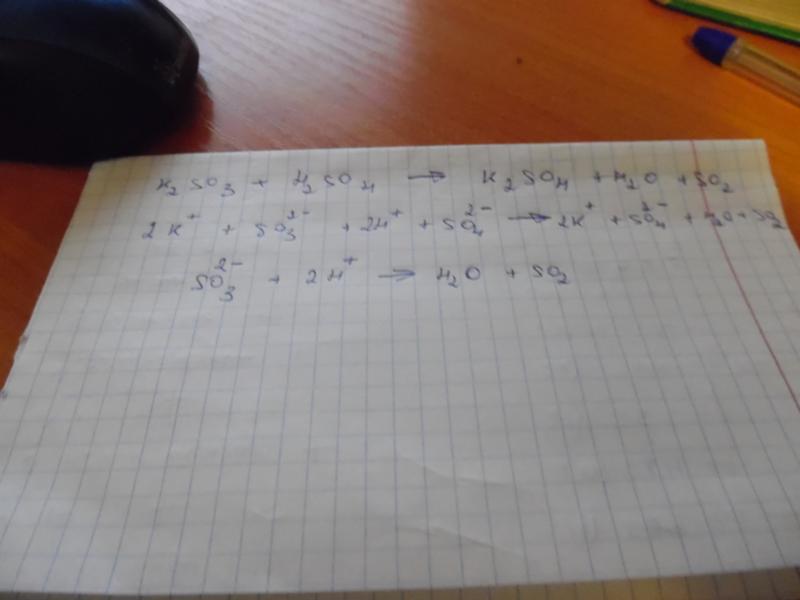 K₂SO₃ + H₂SO₄ → K₂SO₄ + H₂O + SO₂
2K⁺ + SO₃²⁻ + 2H⁺ + SO₄²⁻ → 2K⁺ + SO₄²⁻ + H₂O + SO₂
SO₃²⁻ + 2H⁺ → H₂O + SO₂